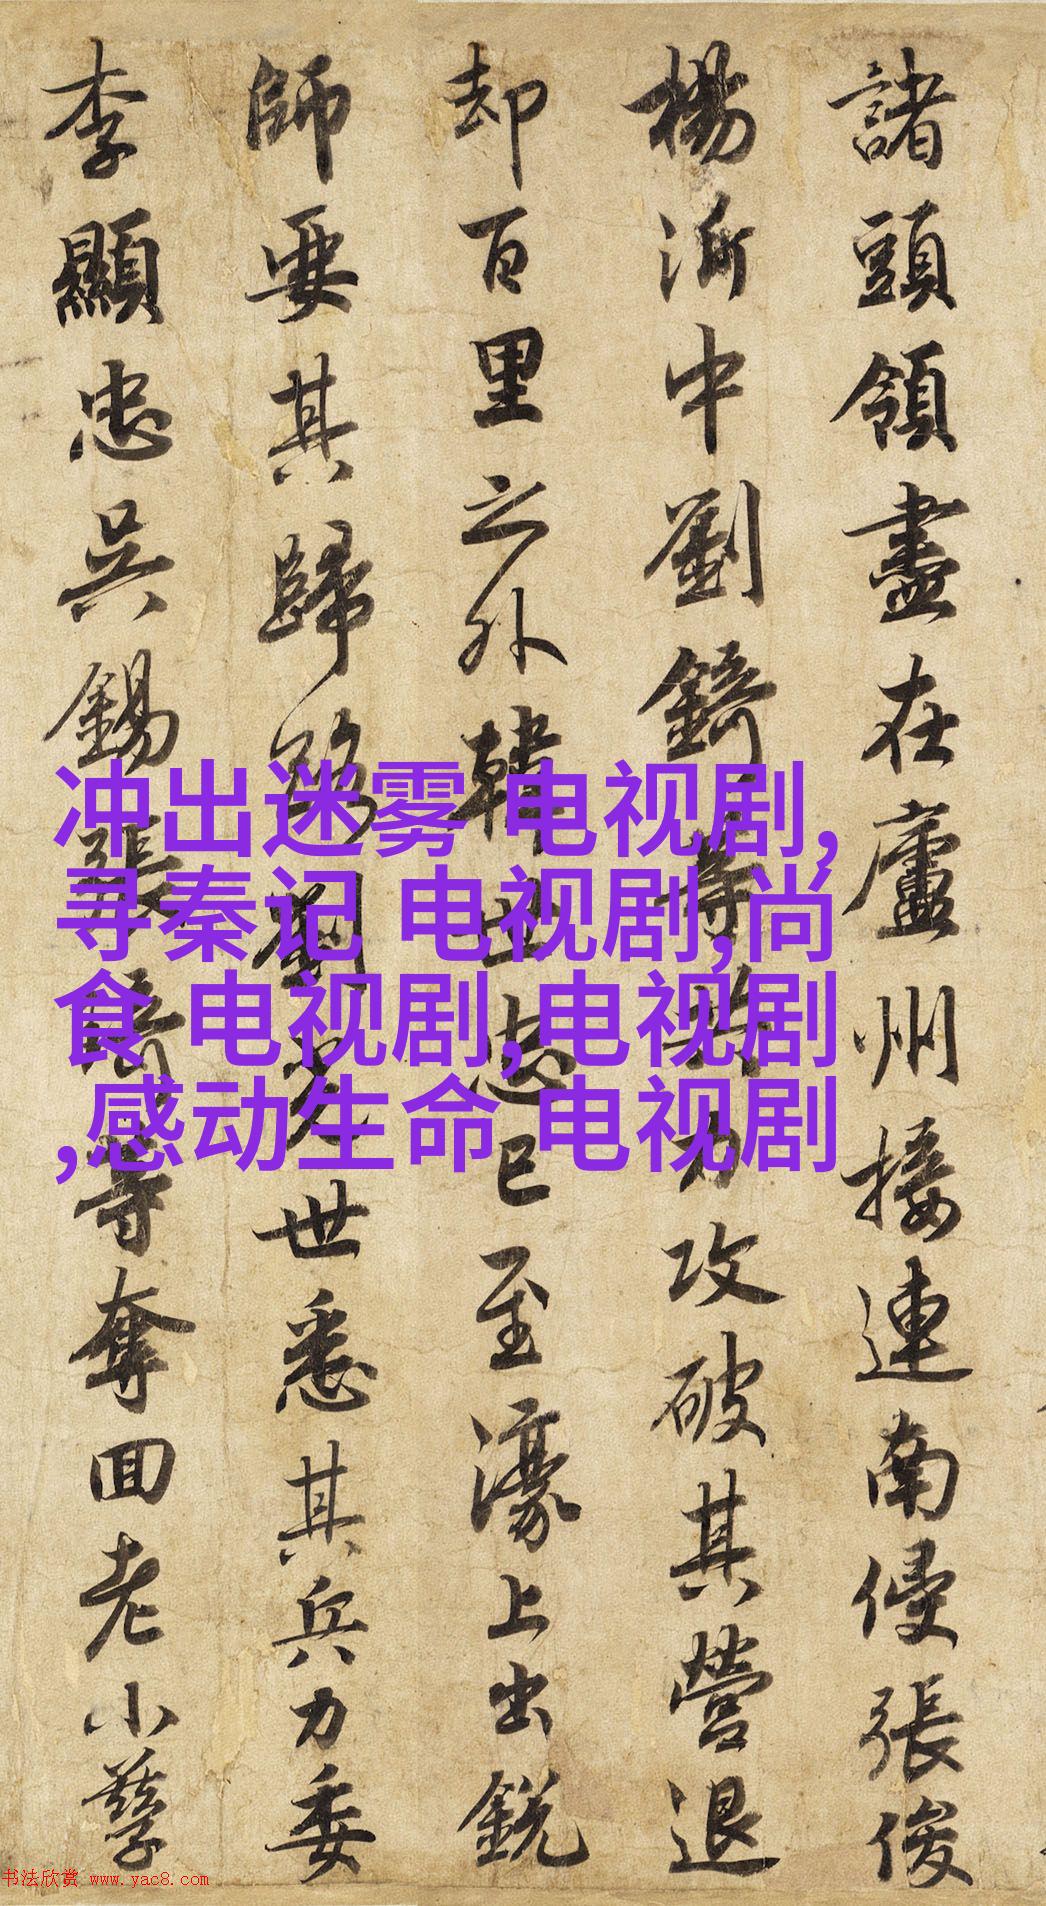 諸頭領盡在廬州接連南侵張俊
楊沂中劉錡等共力攻破其營退
却百里之外韓世忠已至濠上出銳
師要其歸路劉光世悉其兵力委
李顯忠吳錫張琦等奪回老小孳
冲出迷雾 电视剧,
寻秦记 电视剧,尚
食 电视剧,电视剧
,感动生命 电视剧
书法欣赏 www.yac8.com